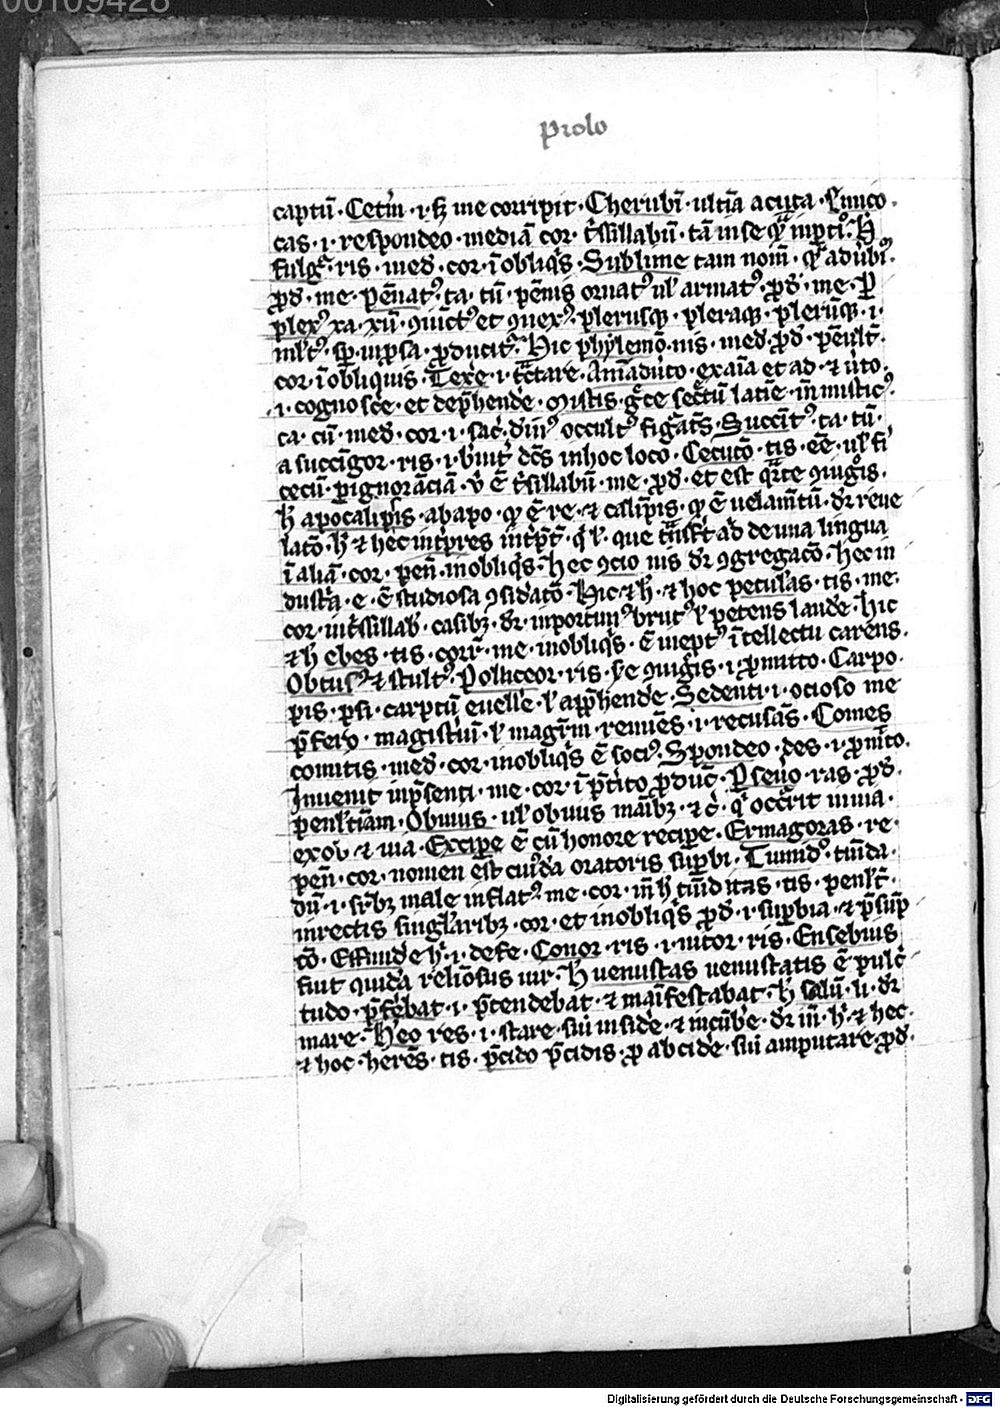 00109428
Prolo
captū · Cet̄m · i · sꝫ me corripit · Cherubī · ultīa acuta ·
cas · i · respondeo · mediā cor · tͥsillabū · tā in se
fulgꝛ · ris · med · cor · ī obliqͥs · Sublime tam nom̄ ·
ꝓd · me · pēnatꝰ · ta · tū · pēnis ornatꝰ ul armatꝰ · ꝓd · me ·
plexꝰ xa · xū · ꝯiūctꝰ et ꝯnexꝰ · plerusqꝫ · pleraqꝫ · plerūqꝫ · i ·
ml̄tꝰ · ꝓducit᷑ · Hic phylemō · nis · med · ꝓd · penl̄t ·
cor · ī obliquis · Texe · i · tͣctare · Aīaduto · exaīa et ad · ⁊ uto ·
· i · cognosce · et dep̄hende · Mistis · gͣce secͤtū latīe · in̄ misticꝰ ·
ca · cū · med · cor · i · sac̄ · diuīꝰ occultꝰ figͣatꝰ · Succīctꝰ · ta · tū ·
a succīgor · ris · i · breuitͬ dc̄s in hoc loco · Cecutio · tis · eē · ul fi
cecū · ꝑ ignorācīā · ū ē tͥsillabū · me · ꝓd · et est qͣrte ꝯiugōis ·
h̄ apocalipsis · ab apo · qͩ ē re · ⁊ calipsis · qͩ ē uelam̄tū · dr̄ reue
latō · h̄ ⁊ hec int̄pres int̄p̄t · qͥ l · que tͣnsfert ad de una lingua
ī aliā · cor · pen̄ · in obliqͥs · hec ꝯcio nis dr̄ ꝯgregacō · hec in
dustͥa · e · ē studiosa ꝯsid̄atō · Hic ⁊ h̄ · ⁊ hoc petulās · tis · me ·
cor · in tͥsillab · casibꝫ · dr̄ inportunꝰ brutꝰ l petens laude · hic
⁊ h̄ ebes · tis · corr̄ · me · in obliqͥs · ē ineptꝰ ītellectu carens ·
Obtusꝰ ⁊ stultꝰ · Polliceor · ris · ꝯiugīs · i · ꝓmitto · Carpo ·
pis · psi · carptū euelle · l app̄hende · Sedenti · i · ocioso me
p̄fero · magistͥuī · l magr̄m renuēs · i · recusās · Comes
comitis · med · cor · in obliqͥs ē sociꝰ · Spondeo · des · i · ꝓmīto ·
Inuenit in p̄senti · me · cor · ī p̄tito ꝓduc̄ · ꝑseuo · ras · ꝓd ·
penl̄tiam · Obuius · ul obuius māibꝫ · ⁊ c̄ · qͥ occ̄rit in uia ·
ex ob ⁊ uia · Excipe ē cū honore recipe · Ermagoras · re ·
pen̄ · cor · nomen est cuiꝰda oratoris suꝑbi · Tumidꝰ · tūida ·
dū · i · male inflatꝰ me · cor · in̄ h̄ tūiditas · tis · penl̄t ·
in rectis singl̄aribꝫ · cor · et in obliqͥs ꝓd · i · suꝑbia · ⁊ p̄sūp
tō · Effunde h̄ · i · defe · Conor · ris · i · nitor · ris · Eusebius
fuit quida reliōsus uir · H̄ uenustas uenustatis ē pulc̄
tudo · p̄fe̅bat · i · p̄tendebat · ⁊ maīfestabat · h̄ salū · li · dr̄
mare · Hereo res · i · stare · siu inside · ⁊ incūbe · dr̄ in̄ · h̄ · ⁊ hec ·
⁊ hoc · herēs · tis · p̄cido p̄cidis · ꝓ abcide · siu amputare · ꝓd ·
Digitalisierung gefördert durch die Deutsche Forschungsgemeinschaft - DFG